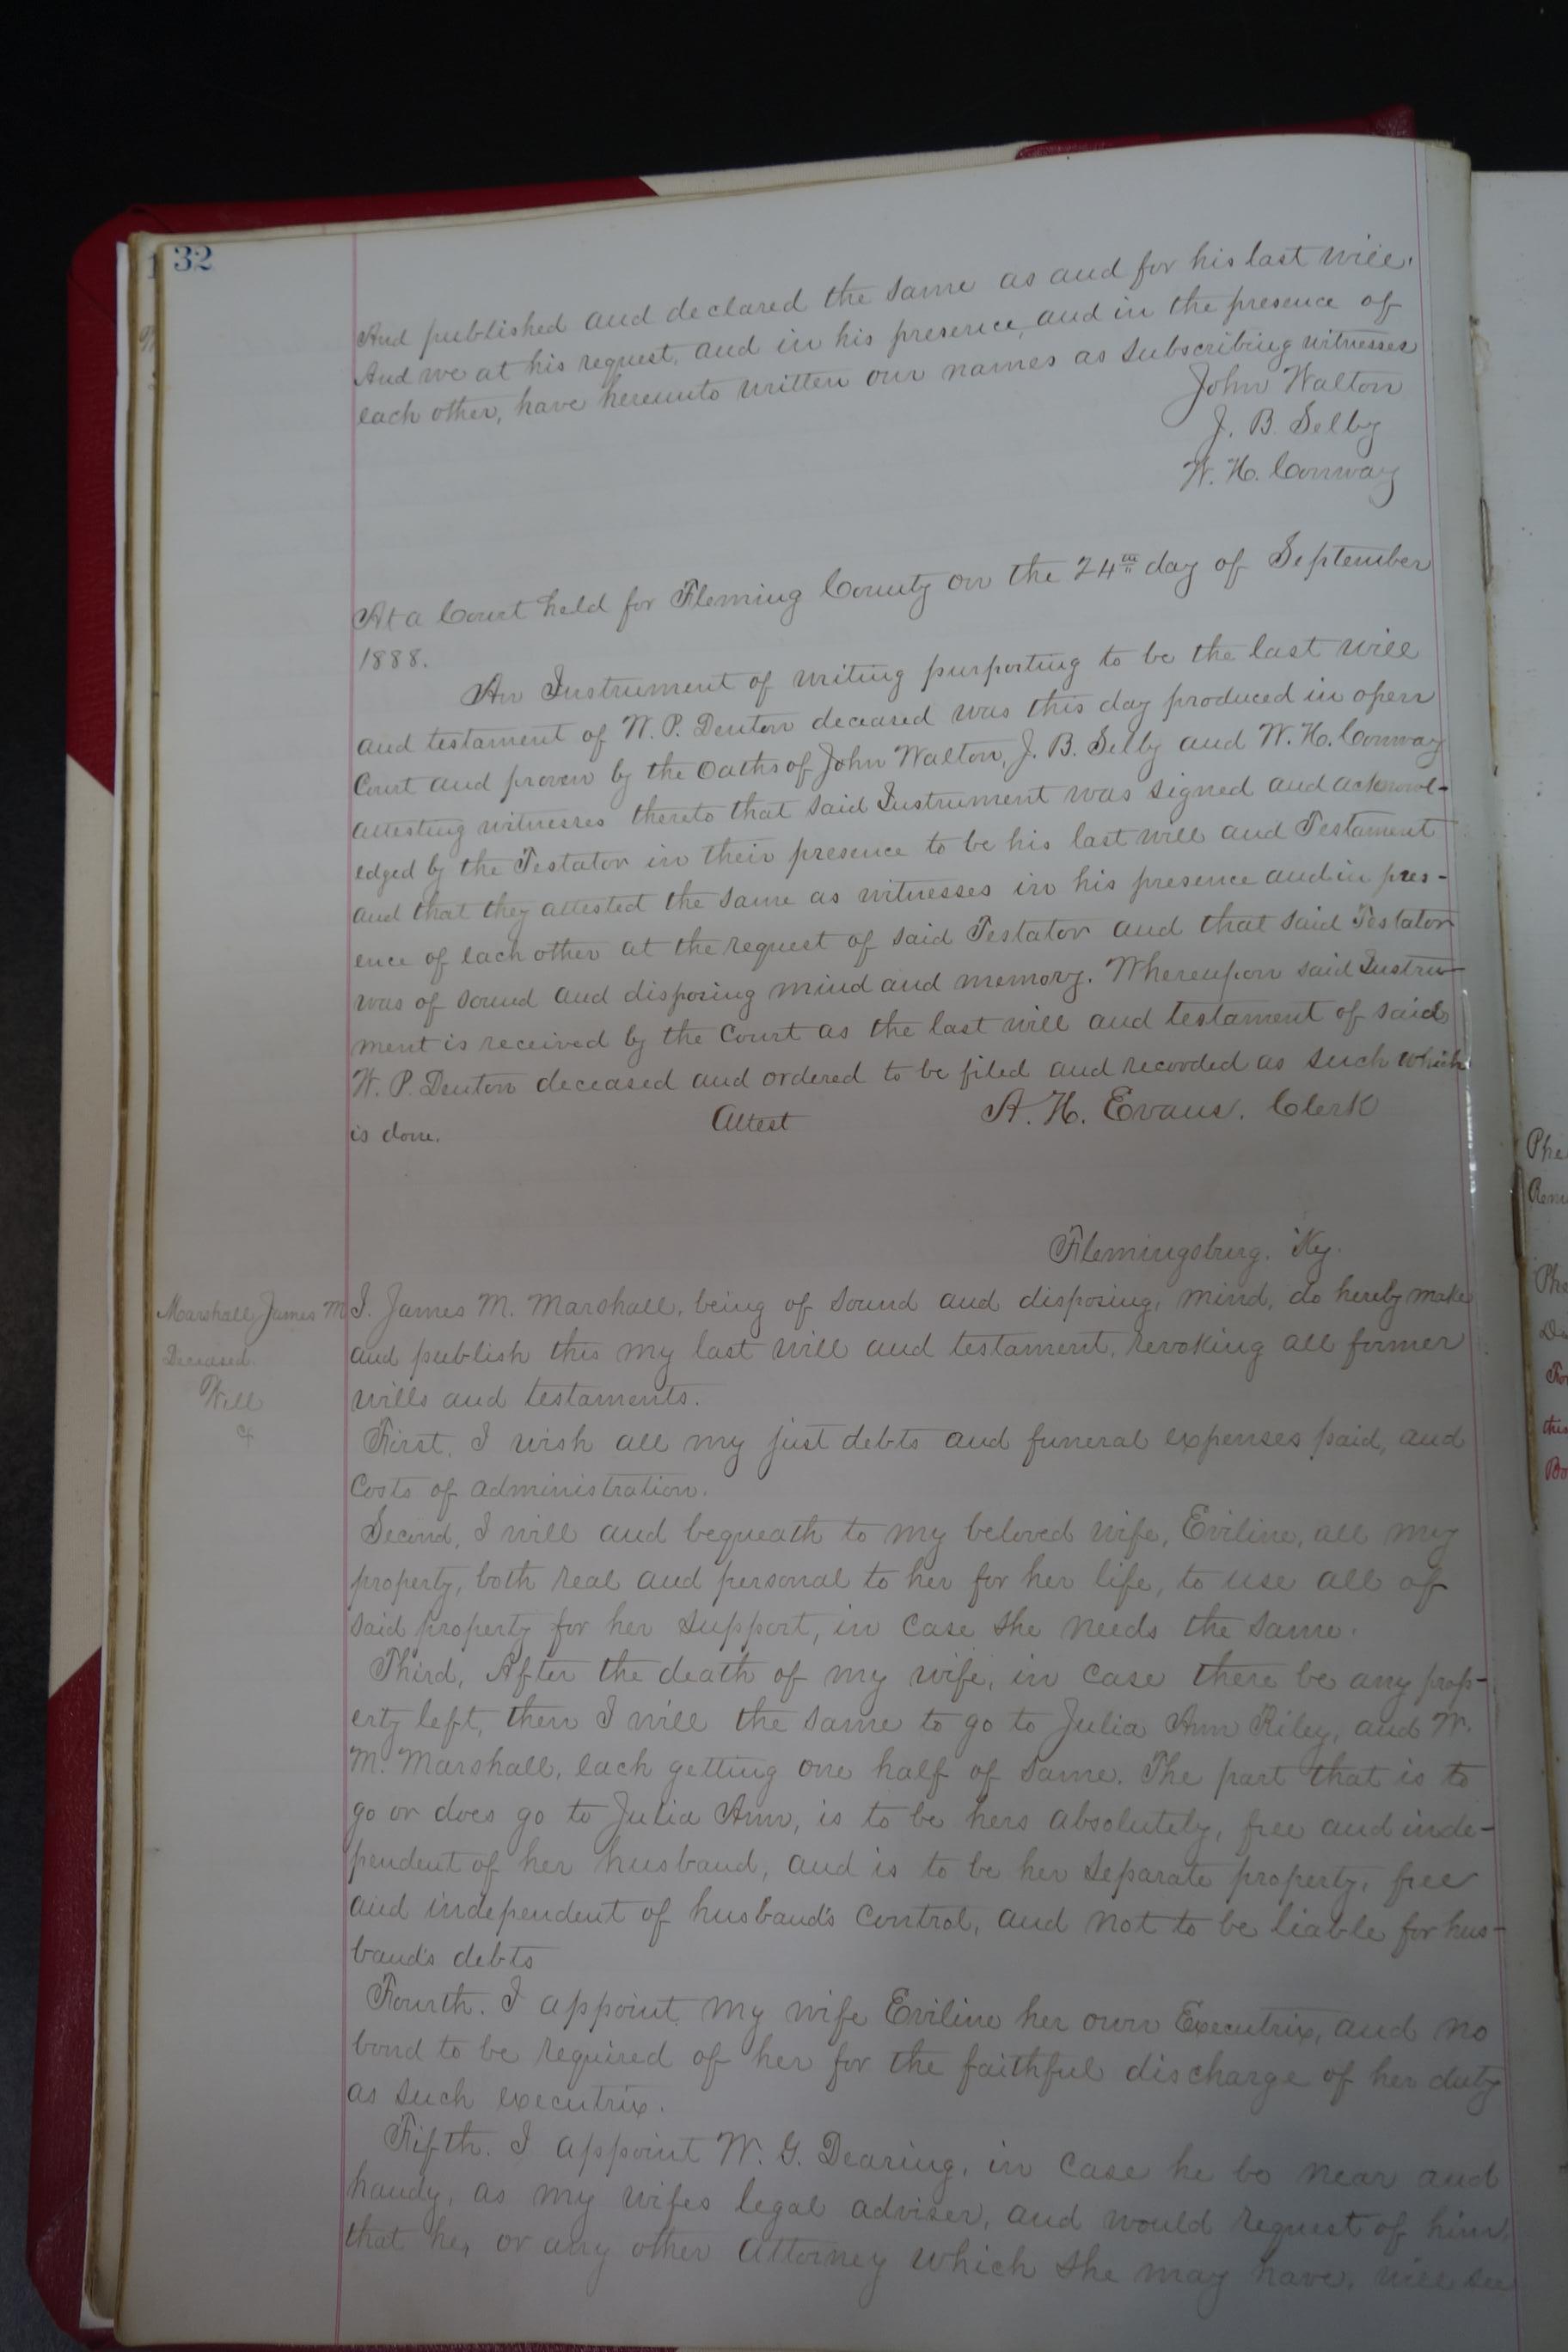 32
And published and declared the same as and for his last will.
And we at his request, and in his presence, and in the presence of
each other, have hereunto written our names as subscribing witnesses
John Walton
J. B. Selby
W. H. Conway
At a Court held for Fleming County on the 24th day of September
1888.
An Instrument of writing purporting to be the last will
and testament of W. P. Denton deceased was this day produced in open
Court and proven by the Oaths of John Walton, J. B. Selby and W. H. Conway
attesting witnesses thereto that said Instrument was signed and acknowl-
edged by the Testator in their presence to be his last will and Testament
and that they attested the same as witnesses in his presence and in pres-
ence of each other at the request of said Testator and that said Testator
was of sound and disposing mind and memory. Whereupon said Instru-
ment is received by the Court as the last will and testament of said
W. P. Denton deceased and ordered to be filed and recorded as such which
is done. Attest A. H. Evans. Clerk
Flemingsburg. Ky.
Marshall James M
Deceased.
Will
I. James M. Marshall, being of sound and disposing, mind, do hereby make
and publish this my last will and testament, revoking all former
wills and testaments.
First. I wish all my just debts and funeral expenses paid, and
Costs of administration.
Second, I will and bequeath to my beloved wife, Eviline, all my
property, both real and personal to her for her life, to use all of
said property for her support, in case she needs the same.
Third, After the death of my wife, in case there be any prop-
erty left, then I will the same to go to Julia Ann Riley, and W.
M. Marshall, each getting one half of same. The part that is to
go or does go to Julia Ann, is to be hers absolutely, free and inde-
pendent of her husband, and is to be her separate property, free
and independent of husband's control, and not to be liable for hus-
band's debts
Fourth. I appoint my wife Eviline her own Executrix, and no
bond to be required of her for the faithful discharge of her duty
as such executrix.
Fifth. I appoint W. G. Dearing, in case he be near and
handy, as my wifes legal adviser, and would request of him
that he, or any other Attorney which she may have, will see
Phe
Du
this
Bo